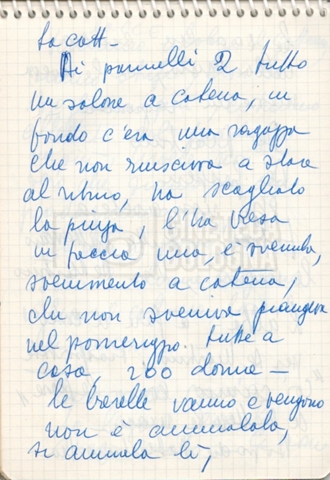 Ai pannelli 2 tutto
un salone a catena, in
fondo c'era una ragazza
che non riusciva a stare
al ritmo, ha scagliato
la pinza, l'ha presa
in faccia una, è svenuta,
svenimento a catena,
chi non sveniva piangeva
nel pomeriggio tutte a
casa, 200 donne —
le barelle vanno e vengono
non è ammalata,
si ammala lì,